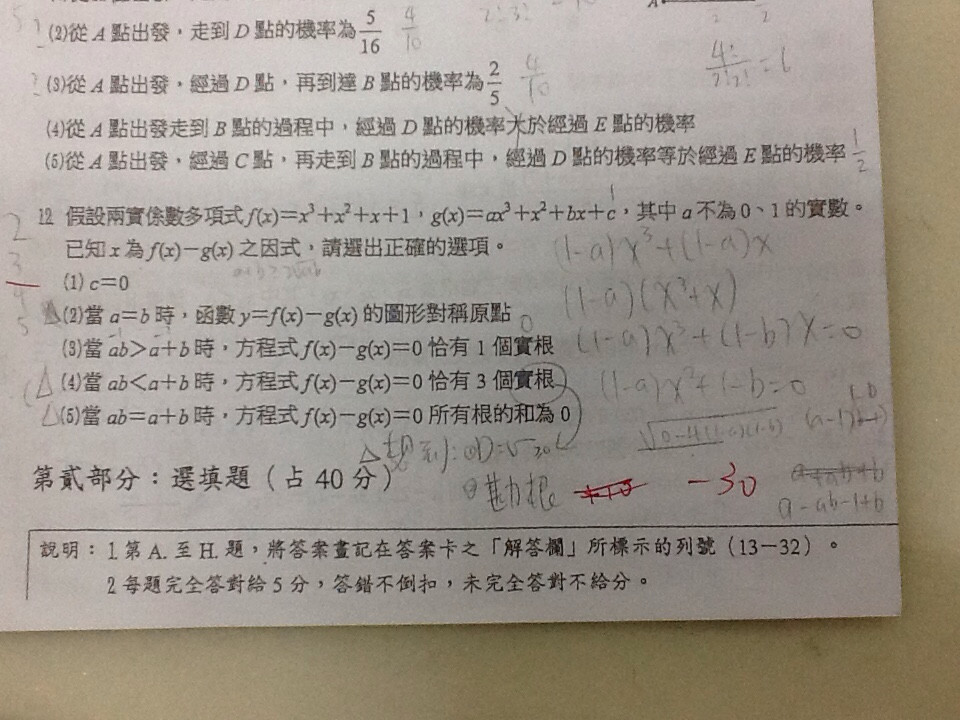 (2)從 A 點出發，走到 D 點的機率為 5/16 4/10
(3)從 A 點出發，經過 D 點，再到達 B 點的機率為 2/5 4/10
4!/2!2! = 6
(4)從 A 點出發走到 B 點的過程中，經過 D 點的機率大於經過 E 點的機率
(5)從 A 點出發，經過 C 點，再走到 B 點的過程中，經過 D 點的機率等於經過 E 點的機率 1/2
12 假設兩實係數多項式 f(x)=x³+x²+x+1，g(x)=ax³+x²+bx+c，其中 a 不為 0、1 的實數。
已知 x 為 f(x)−g(x) 之因式，請選出正確的選項。
(1-a)x³+(1-a)x
(1) c=0
(1-a)(x³+x)
(2)當 a=b 時，函數 y=f(x)−g(x) 的圖形對稱原點
(3)當 ab>a+b 時，方程式 f(x)−g(x)=0 恰有 1 個實根
(1-a)x³+(1-b)x=0
(4)當 ab<a+b 時，方程式 f(x)−g(x)=0 恰有 3 個實根
(1-a)x²+1-b=0
(5)當 ab=a+b 時，方程式 f(x)−g(x)=0 所有根的和為 0
√0-4(1-a)(1-b)
第貳部分：選填題（占 40 分）
-30
a-ab-1+b
說明：1.第 A. 至 H. 題，將答案畫記在答案卡之「解答欄」所標示的列號（13－32）。
2.每題完全答對給 5 分，答錯不倒扣，未完全答對不給分。